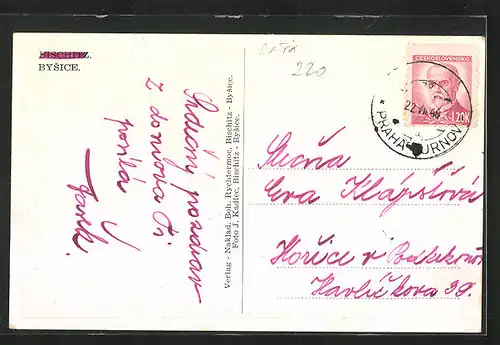 BISCHITZ.
BYŠICE.
220
Srdečný pozdrav
Z domova Ti
posílá
Jarek.
Verlag - Naklad. Boh. Rychtermoc, Bischitz - Byšice.
Foto J. Kadlec, Bischitz - Byšice.
ČESKOSLOVENSKO
1.20K
PRAHA-TURNOV
22.VII.46
Slečna
Eva Klápšťová
Hořice v Podkrkonoší
Havlíčkova 39.